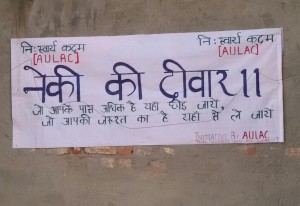 नि:स्वार्थ कदम नि:स्वार्थ कदम
[AULAC] [AULAC]
नेकी की दीवार।।
जो आपके पास अधिक है यहां छोड़ जाये,
जो आपकी जरूरत का है यहाँ से ले जाये
INITIATIVE BY AULAC